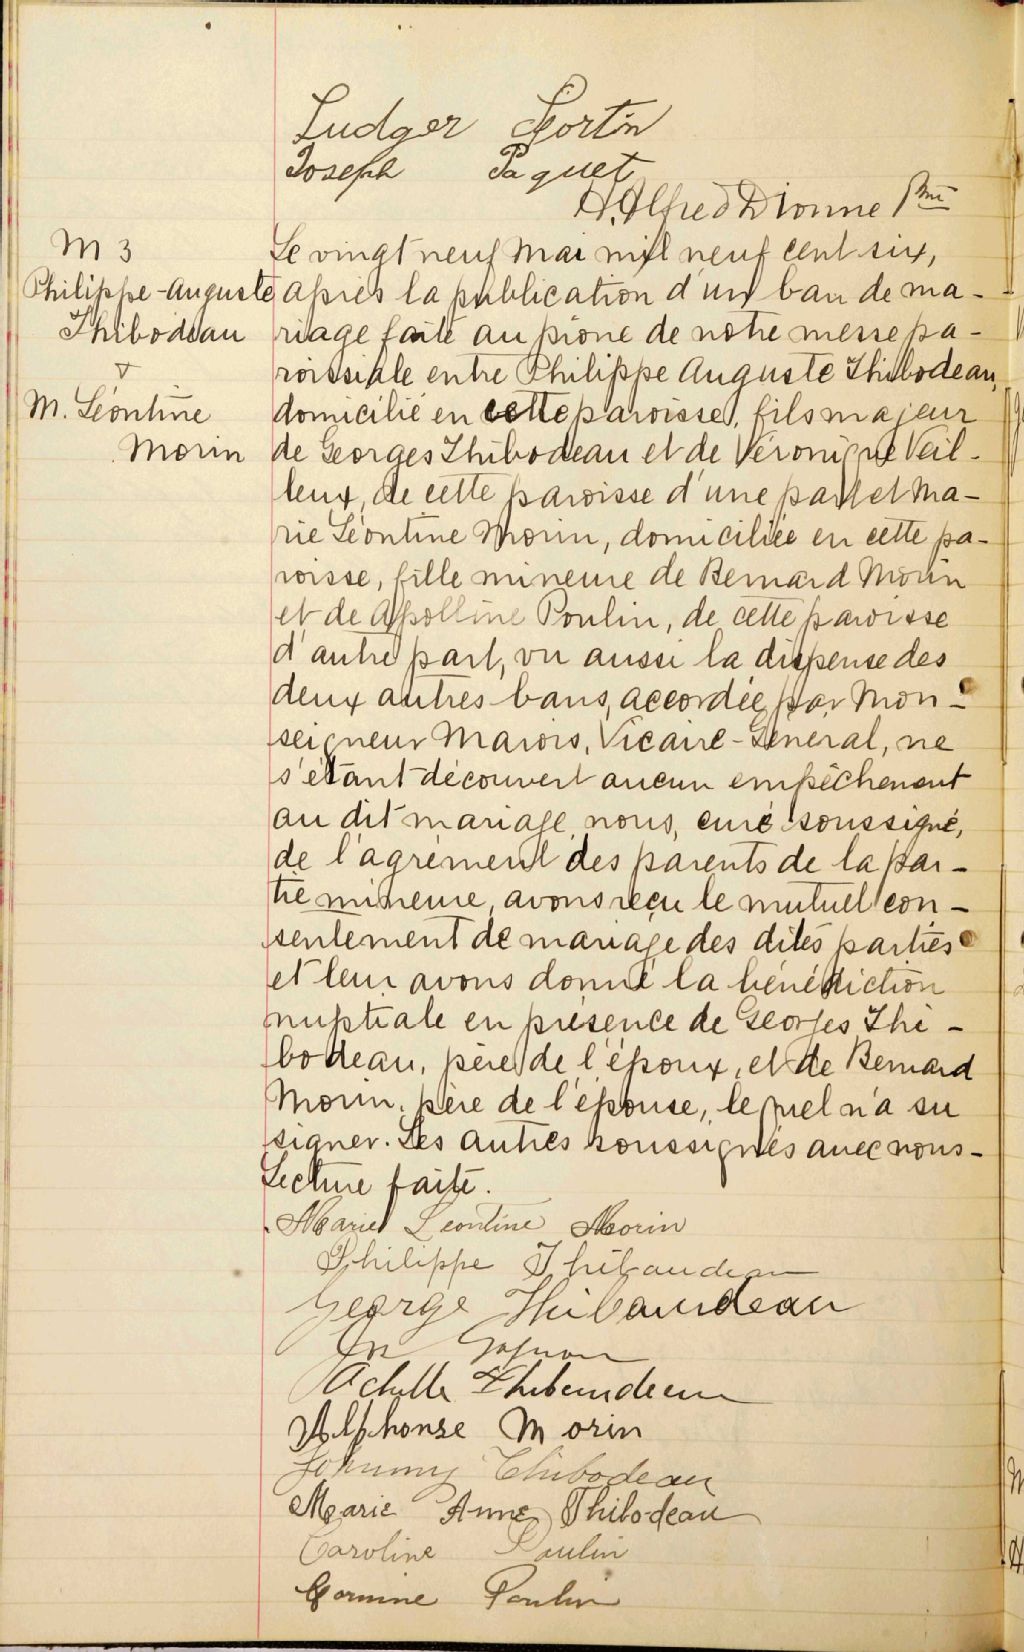 Ludger Fortin
Joseph Paquet
H. Alfred Dionne Ptre
M 3
Philippe-Auguste
Thibodeau
v
M. Léontine
Morin
Le vingt neuf Mai mil neuf cent six,
après la publication d'un ban de ma-
riage faite au prône de notre messe pa-
roissiale entre Philippe Auguste Thibodeau,
domicilié en cette paroisse, fils majeur
de Georges Thibodeau et de Véronique Veil-
leux, de cette paroisse d'une part et Ma-
rie Léontine Morin, domiciliée en cette pa-
roisse, fille mineure de Bernard Morin
et de Apolline Poulin, de cette paroisse
d'autre part, vu aussi la dispense des
deux autres bans, accordée par Mon-
seigneur Marois, Vicaire-Général, ne
s'étant découvert aucun empêchement
au dit mariage, nous, curé soussigné,
de l'agrément des parents de la par-
tie mineure, avons reçu le mutuel con-
sentement de mariage des dites parties
et leur avons donné la bénédiction
nuptiale en présence de Georges Thi-
bodeau, père de l'époux, et de Bernard
Morin, père de l'épouse, lequel n'a su
signer. Les autres soussignés avec nous-
Lecture faite.
Marie Leontine Morin
Philippe Thibaudeau
George Thibaudeau
Achille Thibaudeau
Alphonse Morin
Johnny Thibodeau
Marie Anne Thibodeau
Caroline Poulin
Corinne Poulin